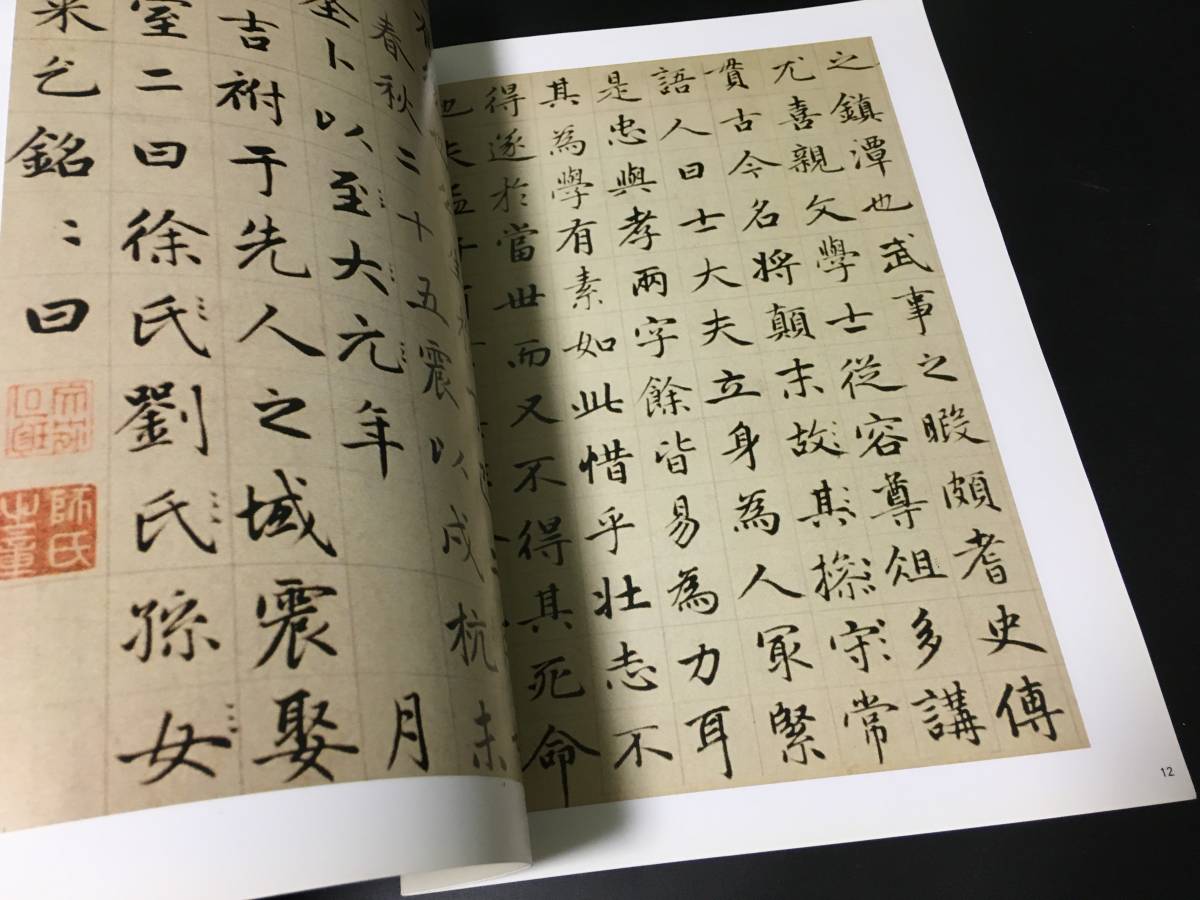 之鎮潭也武事之暇頗耆史傳
尤喜親文學士從容尊俎多講
貫古今名將顛末故其操守常
語人曰士大夫立身為人冣緊
是忠與孝兩字餘皆易為力耳
其為學有素如此惜乎壯志不
得遂於當世而又不得其死命
也夫孟
12
春秋二十五震以戍杭未
卜以至大元年 月
吉祔于先人之域震娶
室二曰徐氏劉氏孫女
來乞銘〻曰
師氏之章